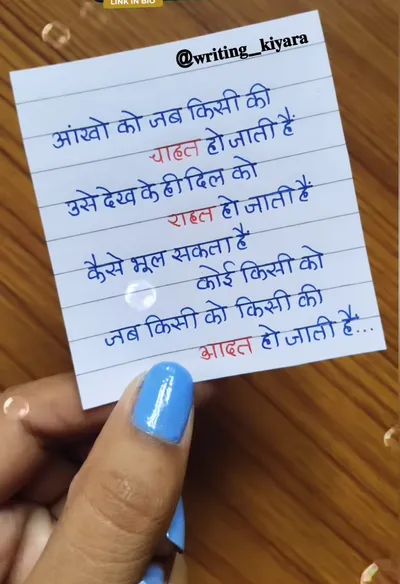 LINK IN BIO
@writing_kiyara
आंखो को जब किसी की
चाहत हो जाती हैं
उसे देख के ही दिल को
राहत हो जाती हैं
कैसे भूल सकता है
कोई किसी को
जब किसी को किसी की
आदत हो जाती हैं...